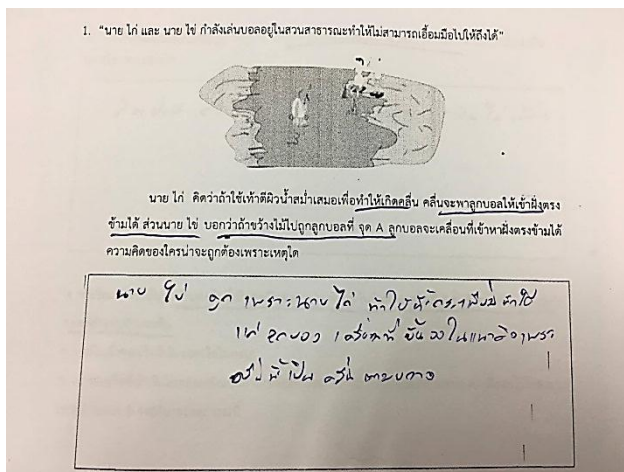 1. "นาย ไก่ และ นาย ไข่ กำลังเล่นบอลอยู่ในสวนสาธารณะทำให้ไม่สามารถเอื้อมมือไปให้ถึงได้"
นาย ไก่ คิดว่าถ้าใช้เท้าตีผิวน้ำสม่ำเสมอเพื่อทำให้เกิดคลื่น คลื่นจะพาลูกบอลให้เข้าฝั่งตรง
ข้ามได้ ส่วนนาย ไข่ บอกว่าถ้าขว้างไม้ไปถูกลูกบอลที่ จุด A ลูกบอลจะเคลื่อนที่เข้าหาฝั่งตรงข้ามได้
ความคิดของใครน่าจะถูกต้องเพราะเหตุใด
นาย ไข่ ถูก เพราะนาย ไก่ ทำให้
แค่ ลูกบอล เคลื่อนที่ ขึ้นลงในแนวดิ่งเพราะ
คลื่นนี้เป็น คลื่น ตามขวาง